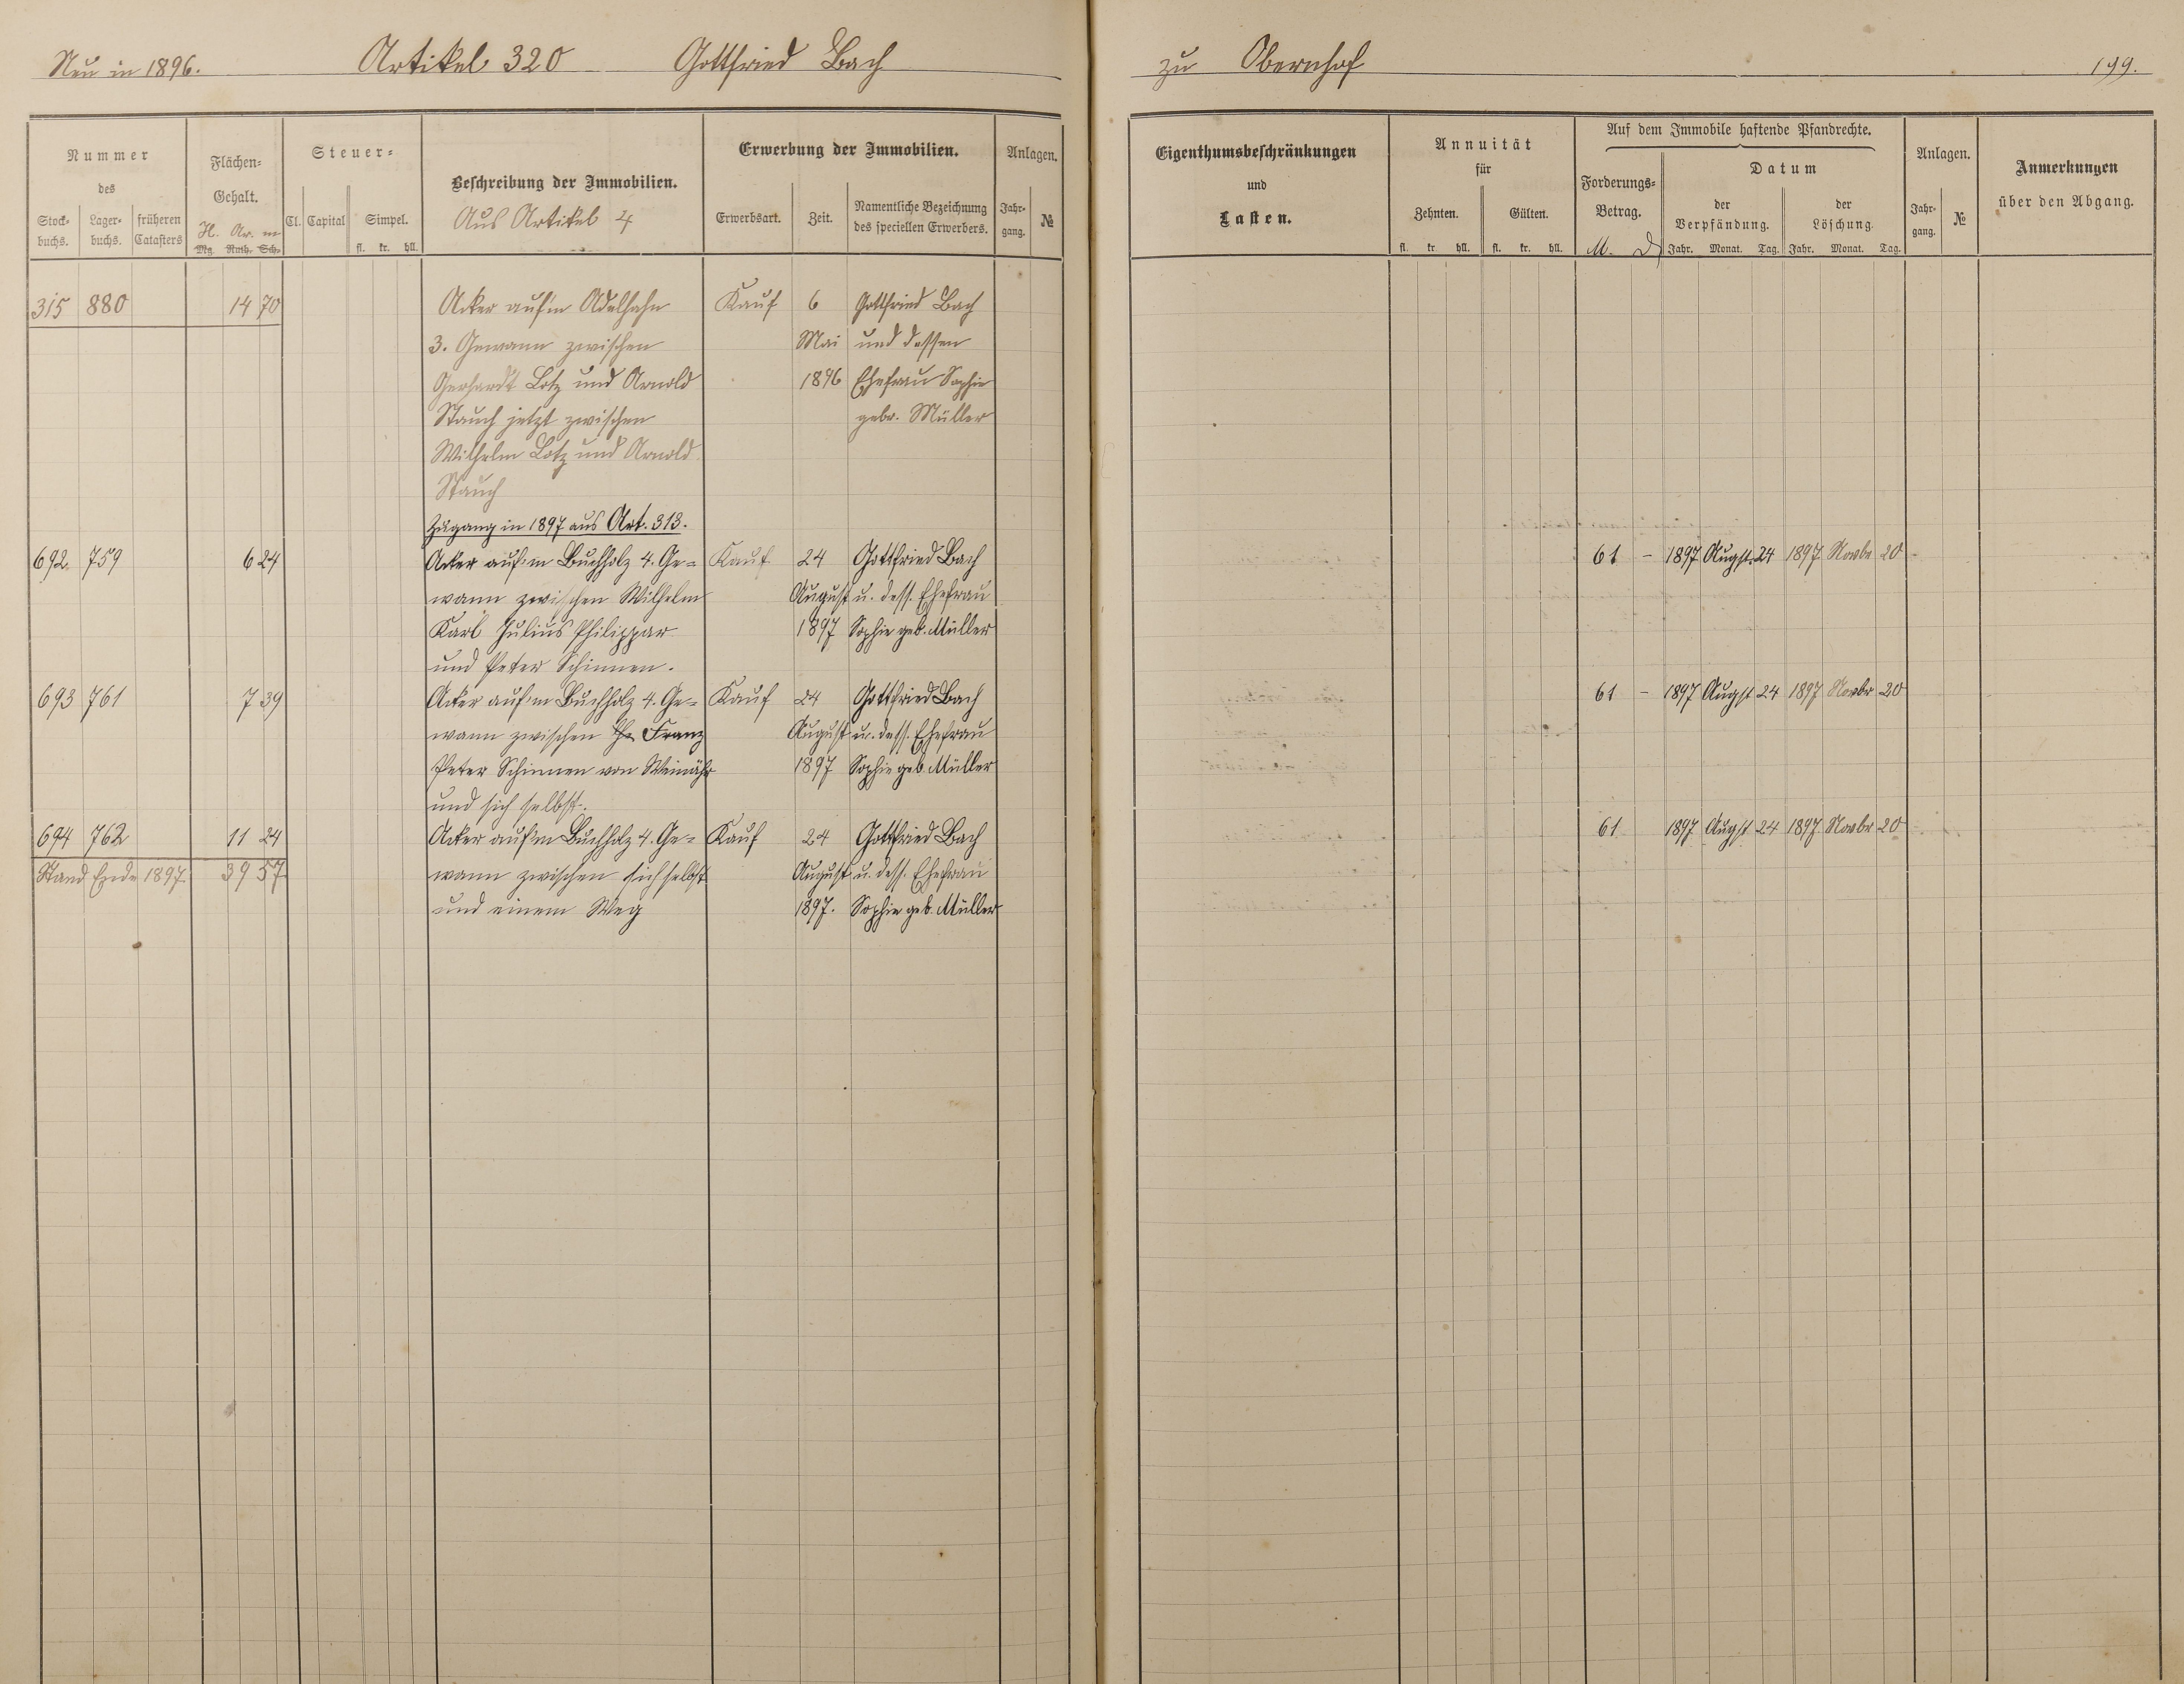 Neu in 1896. Artikel 320 Gottfried Bach
zu Obernhof 199.
Nummer
des
Stock-buchs. Lager-buchs. früheren Catasters
Flächen-Gehalt.
H. Ar. m
Mg. Ruth. Sch.
Steuer-
Cl. Capital Simpel.
fl. kr. hll.
Beschreibung der Immobilien.
Aus Artikel 4
Erwerbung der Immobilien.
Erwerbsart. Zeit. Namentliche Bezeichnung des speciellen Erwerbers.
Anlagen.
Jahr-gang. №
Eigenthumsbeschränkungen
und
Lasten.
Annuität
für
Zehnten. Gülten.
fl. kr. hll. fl. kr. hll.
Auf dem Immobile haftende Pfandrechte.
Forderungs-Betrag.
M.
Datum
der Verpfändung. der Löschung.
Jahr. Monat. Tag. Jahr. Monat. Tag.
Anlagen.
Jahr-gang. №
Anmerkungen
über den Abgang.
315 880 14 70 Acker auf'm Adelhahn Kauf 6 Gottfried Bach
3. Gewann zwischen Mai und dessen
Gerhardt Lotz und Arnold 1896 Ehefrau Sophie
Stauch jetzt zwischen geb. Müller
Wilhelm Lotz und Arnold
Stauch
Zugang in 1897 aus Art. 313.
692. 759 6 24 Acker auf'm Buchholz 4. Ge= Kauf 24 Gottfried Bach 61 – 1897 Augst. 24 1897 Novbr 20
wann zwischen Wilhelm August u. dess. Ehefrau
Karl Julius Philippar 1897 Sophie geb. Müller
und Peter Schinnen.
693 761 7 39 Acker auf'm Buchholz 4. Ge= Kauf 24 Gottfried Bach 61 – 1897 Augst 24 1897 Novbr 20
wann zwischen Franz August u. dess. Ehefrau
Peter Schinnen von Weinähr 1897 Sophie geb. Müller
und sich selbst.
694 762 11 24 Acker auf'm Buchholz 4. Ge= Kauf 24 Gottfried Bach 61 1897 Augst 24 1897 Novbr 20
Stand Ende 1897 39 57 wann zwischen sich selbst August u. dess. Ehefrau
und einem Weg 1897. Sophie geb. Müller